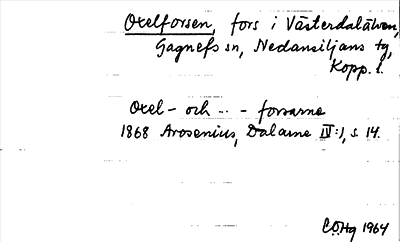 Oxelforsen, fors i Västerdalälven,
Gagnefs sn, Nedansiljans tg,
Kopp. l.
Oxel- och ... - forsarne
1868 Arosenius, Dalarne IV:1, s. 14.
CÖHg 1964